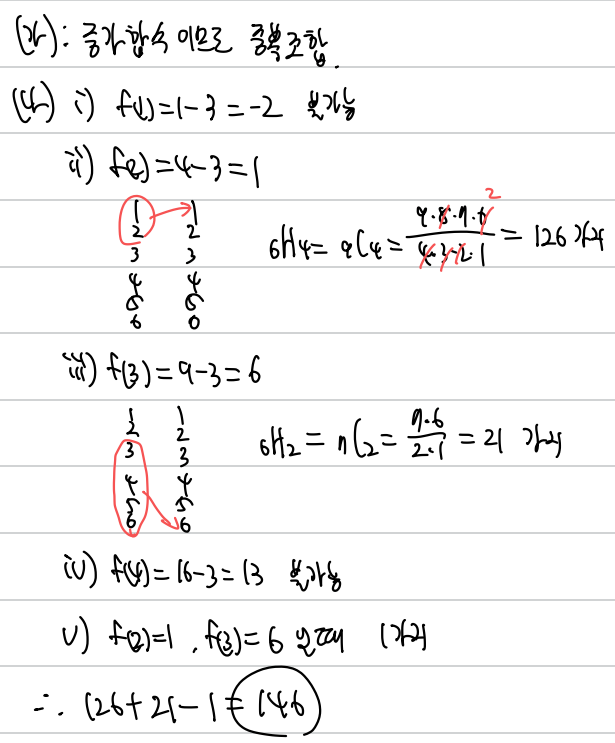 (가): 증가함수 이므로 중복조합.
(나) i) f(1)=1-3=-2 불가능
ii) f(2)=4-3=1
1 1
2 2
3 3
4 4
5 5
6 6
₆H₄= ₉C₄= 9·8·7·6 2 / 4·3·2·1 = 126가지
iii) f(3)=9-3=6
1 1
2 2
3 3
4 4
5 5
6 6
₆H₂= ₇C₂= 7·6 / 2·1 = 21 가지
iv) f(4)=16-3=13 불가능
v) f(2)=1, f(3)=6 일때 1가지
∴ 126+21-1=146